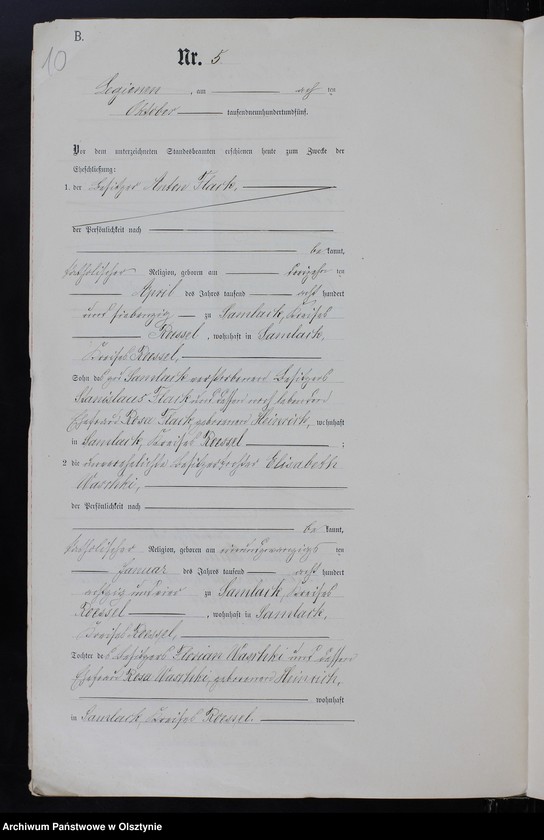 B.
10
Nr. 5
Legienen, am acht ten
Oktober tausendneunhundertundfünf.
Vor dem unterzeichneten Standesbeamten erschienen heute zum Zwecke der
Eheschließung:
1. der Besitzer Anton Flack,
der Persönlichkeit nach
be kannt,
katholischer Religion, geboren am dreizehn ten
April des Jahres tausend acht hundert
und siebenzig zu Samlack, Kreises
Roessel, wohnhaft in Samlack,
Kreises Roessel,
Sohn des zu Samlack verstorbenen Besitzers
Stanislaus Flack und dessen noch lebenden
Ehefrau Rosa Flack, geborenen Heinrich, wohnhaft
in Samlack, Kreises Roessel ;
2 die unverehelichte Besitzertochter Elisabeth
Waschki,
der Persönlichkeit nach
be kannt,
katholischer Religion, geboren am einundzwanzigs ten
Januar des Jahres tausend acht hundert
achtzig und vier zu Samlack, Kreises
Roessel, wohnhaft in Samlack,
Kreises Roessel,
Tochter des Besitzers Florian Waschki und dessen
Ehefrau Rosa Waschki, geborenen Heinrich,
wohnhaft
in Samlack, Kreises Roessel.
Archiwum Państwowe w Olsztynie